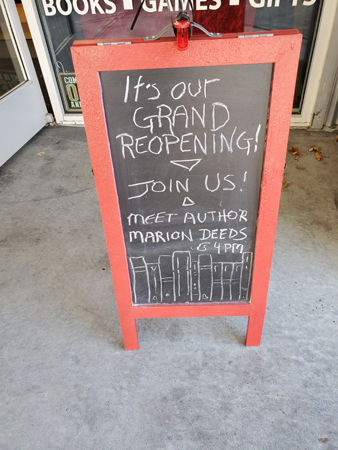 BOOKS ▪ GAMES ▪ GIFTS
It's our
GRAND
REOPENING!
JOIN US!
MEET AUTHOR
MARION DEEDS
@ 4PM